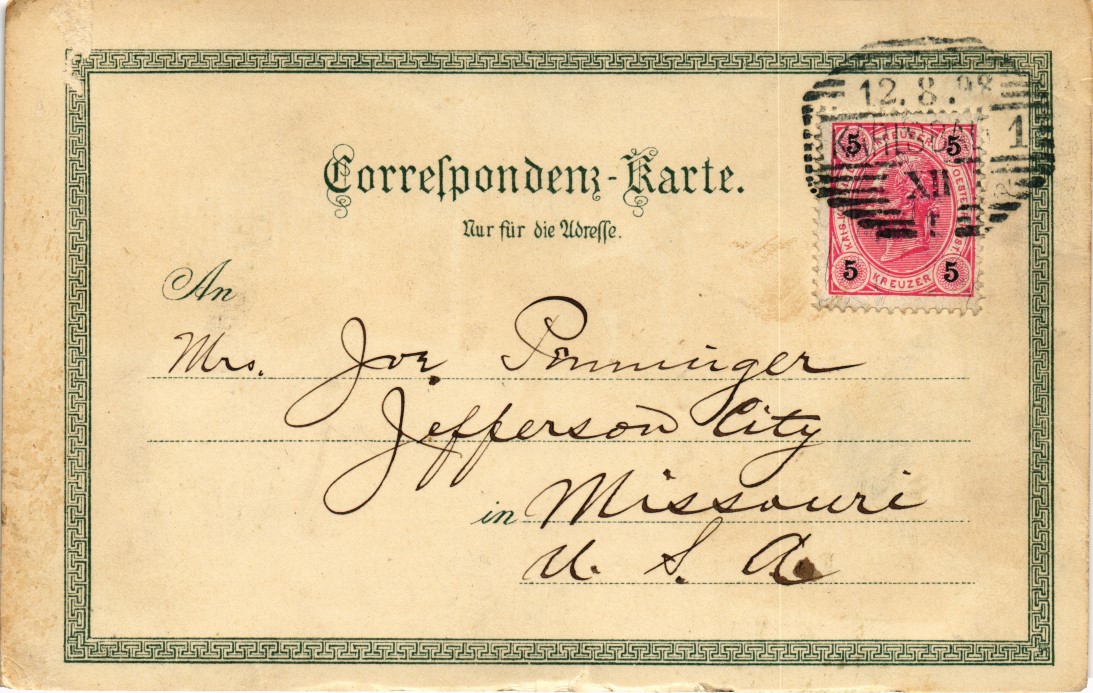 12. 8. 98
1
XII
5 KREUZER 5
5 KREUZER 5
Correspondenz-Karte.
Nur für die Adresse.
An
Mrs. Joe Pönninger
Jefferson City
in Missouri
U. S. A